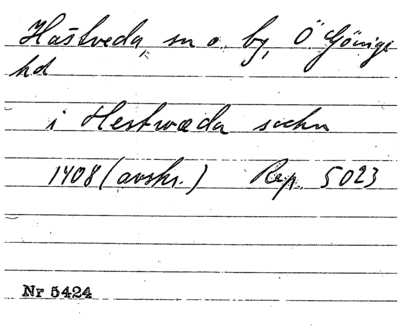 Hästveda, sn o. by, Ö Göinge
hd
i Hestwæda sochn
1408 (avskr.) Rep. 5023
Nr 5424